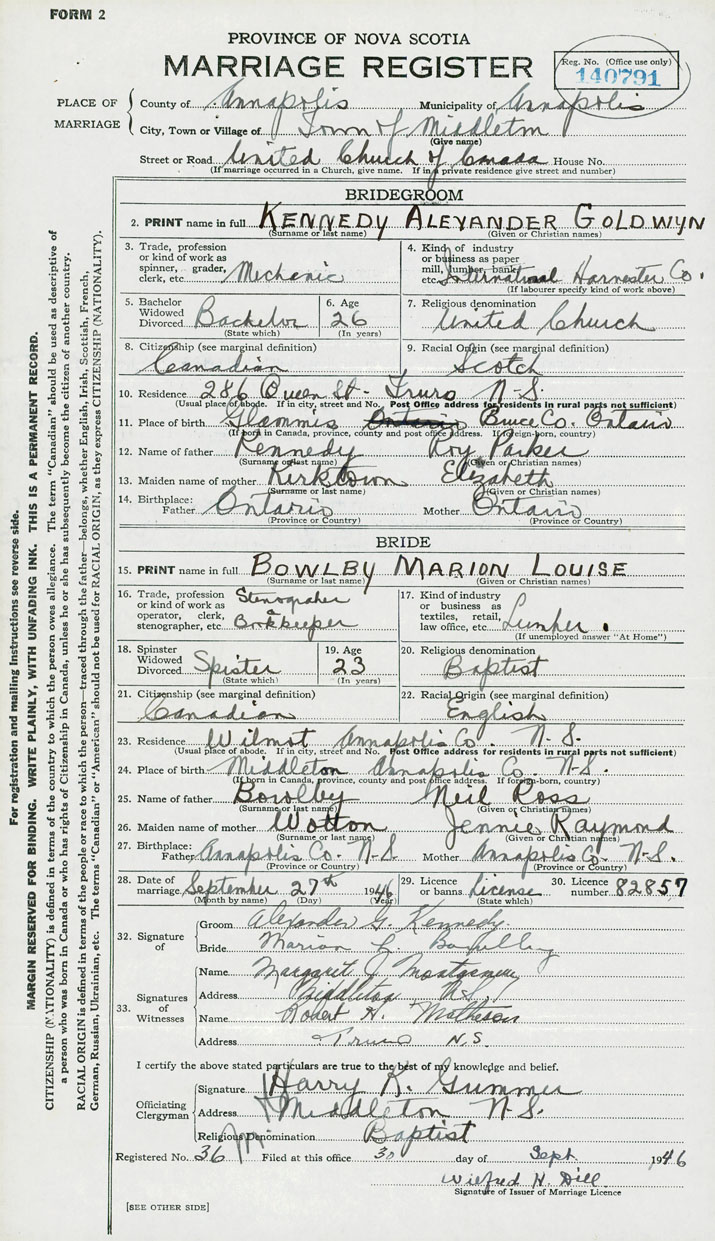 FORM 2
PROVINCE OF NOVA SCOTIA
MARRIAGE REGISTER
Reg. No. (Office use only)
140791
PLACE OF MARRIAGE
County of Annapolis Municipality of Annapolis
City, Town or Village of Town of Middleton
(Give name)
Street or Road United Church of Canada House No.
(If marriage occurred in a Church, give name. If in a private residence give street and number)
BRIDEGROOM
2. PRINT name in full KENNEDY ALEXANDER GOLDWYN
(Surname or last name) (Given or Christian names)
3. Trade, profession or kind of work as spinner, grader, clerk, etc. Mechanic
4. Kind of industry or business as paper mill, lumber, bank, etc. International Harvester Co.
(If labourer specify kind of work above)
5. Bachelor Widowed Divorced Bachelor
(State which)
6. Age 26
(In years)
7. Religious denomination United Church
8. Citizenship (see marginal definition) Canadian
9. Racial Origin (see marginal definition) Scotch
10. Residence 286 Queen St. Truro N-S
(Usual place of abode. If in city, street and No. Post Office address for residents in rural parts not sufficient)
11. Place of birth Glammis Ontario Bruce Co. Ontario
(If born in Canada, province, county and post office address. If foreign-born, country)
12. Name of father Kennedy Roy Parker
(Surname or last name) (Given or Christian names)
13. Maiden name of mother Kirktown Elizabeth
(Surname or last name) (Given or Christian names)
14. Birthplace: Father Ontario Mother Ontario
(Province or Country) (Province or Country)
BRIDE
15. PRINT name in full BOWLBY MARION LOUISE
(Surname or last name) (Given or Christian names)
16. Trade, profession or kind of work as operator, clerk, stenographer, etc. Stenograher & Bookkeeper
17. Kind of industry or business as textiles, retail, law office, etc. Lumber.
(If unemployed answer "At Home")
18. Spinster Widowed Divorced Spister
(State which)
19. Age 23
(In years)
20. Religious denomination Baptist
21. Citizenship (see marginal definition) Canadian
22. Racial Origin (see marginal definition) English
23. Residence Wilmot Annapolis Co. N. S.
(Usual place of abode. If in city, street and No. Post Office address for residents in rural parts not sufficient)
24. Place of birth Middleton Annapolis Co. N-S.
(If born in Canada, province, county and post office address. If foreign-born, country)
25. Name of father Bowlby Neil Ross
(Surname or last name) (Given or Christian names)
26. Maiden name of mother Wotton Jennie Raymond
(Surname or last name) (Given or Christian names)
27. Birthplace: Father Annapolis Co. N-S. Mother Annapolis Co. N-S.
(Province or Country) (Province or Country)
28. Date of marriage September 27th 1946
(Month by name) (Day) (Year)
29. Licence or banns License
(State which)
30. Licence number 82857
32. Signature of
Groom Alexander G. Kennedy.
Bride Marion L Bowlby
33. Signatures of Witnesses
Name Margaret J Montgomery
Address Middleton N.S.
Name Robert H. Matheson
Address Truro N.S.
I certify the above stated particulars are true to the best of my knowledge and belief.
Officiating Clergyman
Signature Harry K. Gummer
Address Middleton N-S.
Religious Denomination Baptist
Registered No. 36 Filed at this office 30 day of Sept 1946
Wilfred H. Dill
Signature of Issuer of Marriage Licence
[SEE OTHER SIDE]
For registration and mailing instructions see reverse side.
MARGIN RESERVED FOR BINDING. WRITE PLAINLY, WITH UNFADING INK. THIS IS A PERMANENT RECORD.
CITIZENSHIP (NATIONALITY) is defined in terms of the country to which the person owes allegiance. The term "Canadian" should be used as descriptive of
a person who was born in Canada or who has rights of Citizenship in Canada, unless he or she has subsequently become the citizen of another country.
RACIAL ORIGIN is defined in terms of the people or race to which the person—traced through the father—belongs, whether English, Irish, Scottish, French,
German, Russian, Ukrainian, etc. The terms "Canadian" or "American" should not be used for RACIAL ORIGIN, as they express CITIZENSHIP (NATIONALITY).